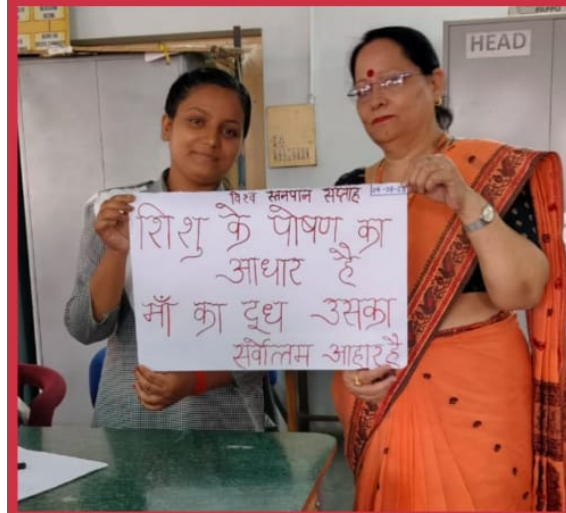 HEAD
विश्व स्तनपान सप्ताह
शिशु के पोषण का
आधार है
माँ का दूध उसका
सर्वोत्तम आहार है